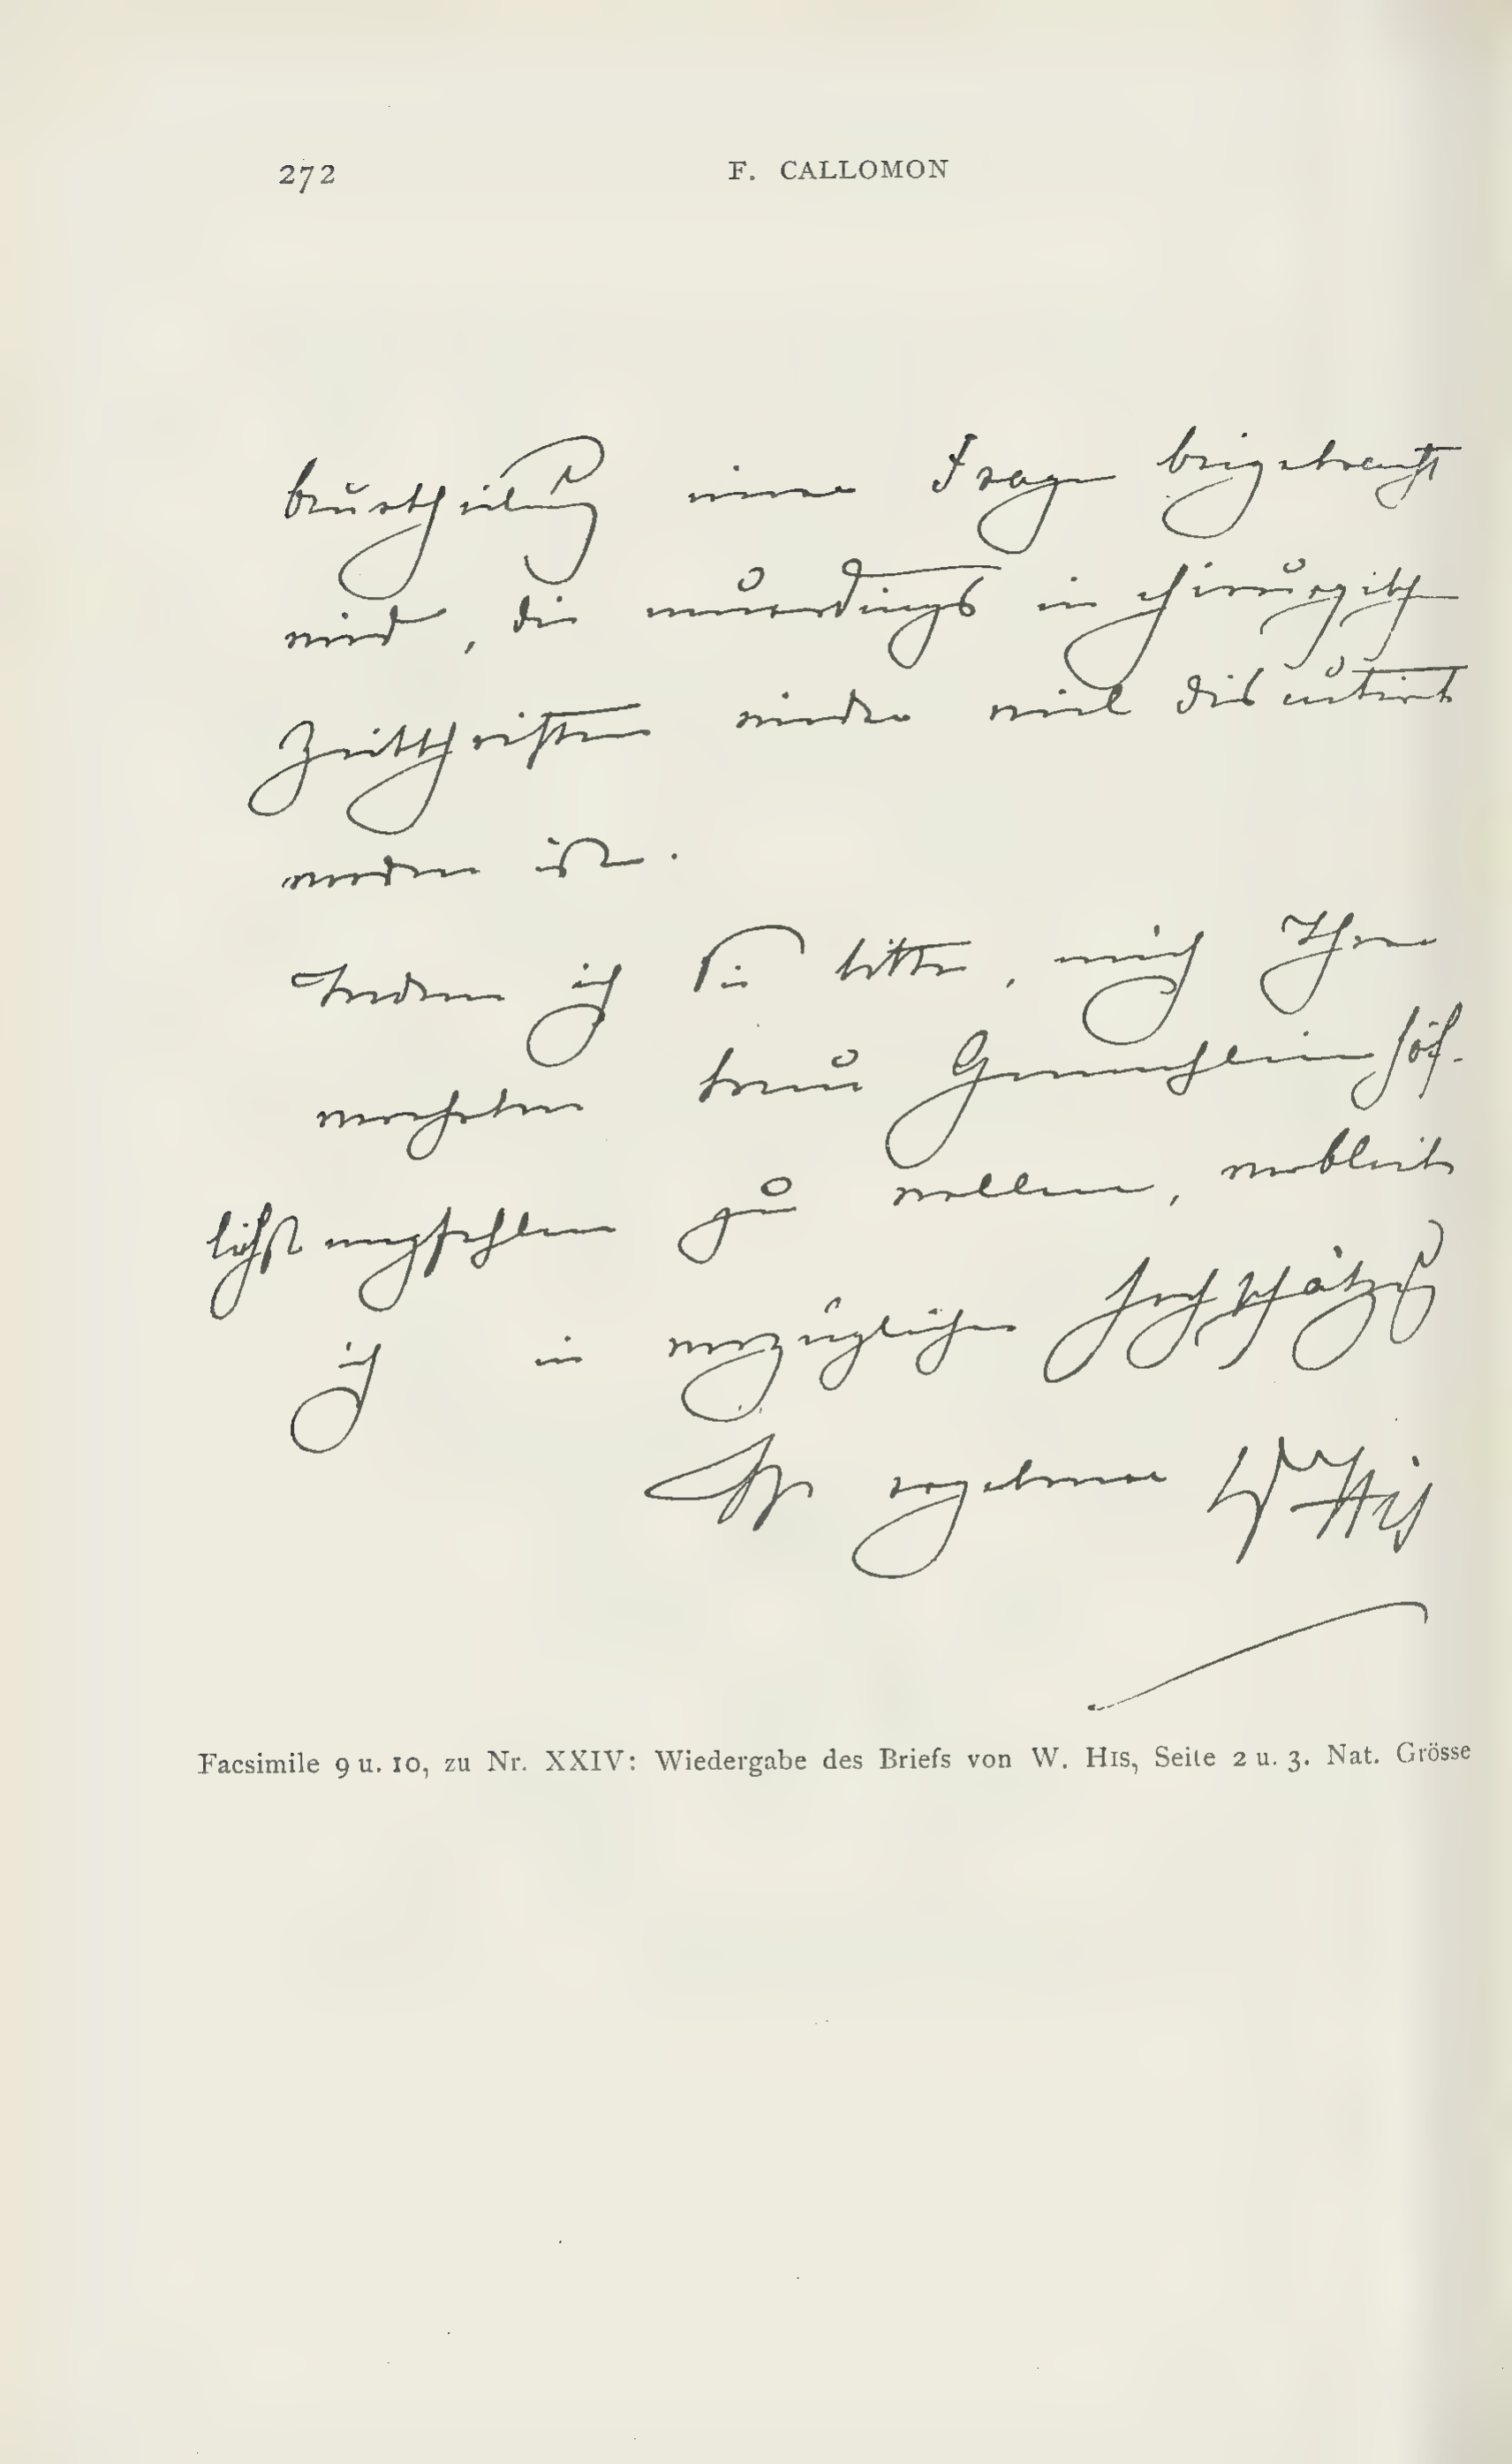 272 F. CALLOMON
beurtheilung einer Frage beigebracht
wird, die neuerdings in chirurgisch
Zeitschriften wieder viel discutirt
worden ist.
Indem ich Sie bitte, mich Ihrer
verehrten Frau Gemahlin höf-
lichst empfehlen zu wollen, verbleibe
ich in vorzüglicher Hochschätzg
Ihr ergebener W His
Facsimile 9 u. 10, zu Nr. XXIV: Wiedergabe des Briefs von W. HIS, Seite 2 u. 3. Nat. Grösse